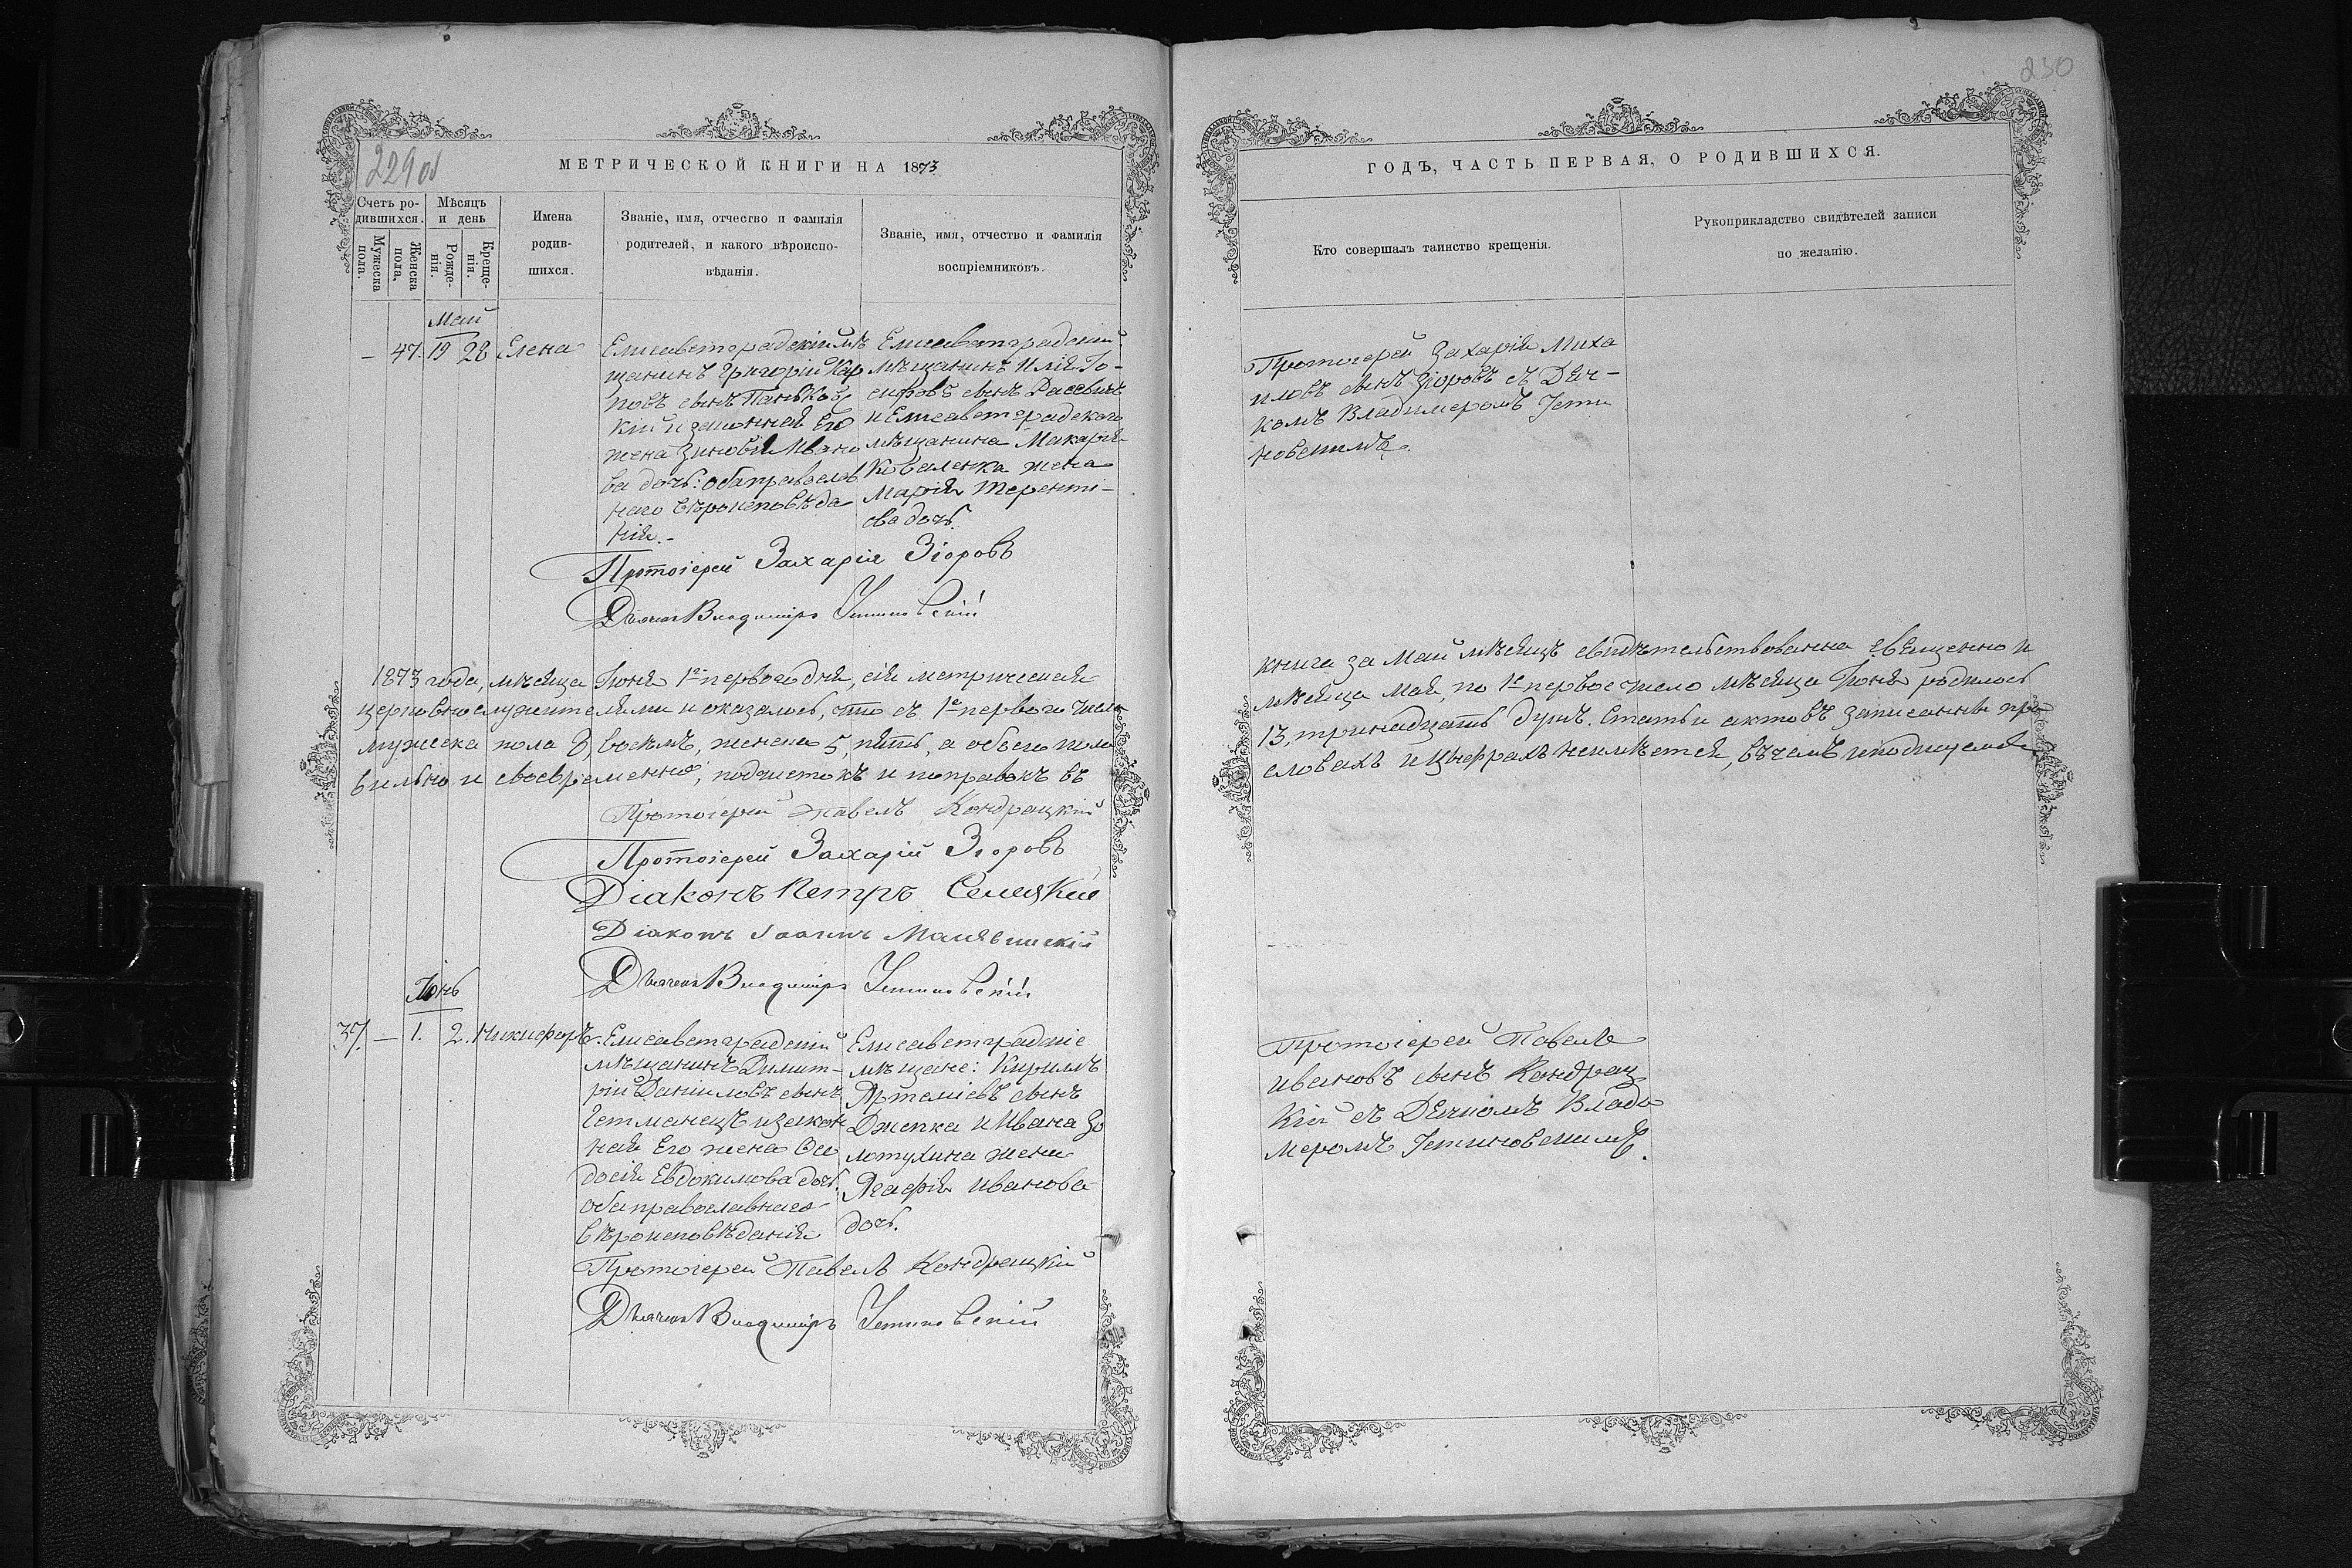 229 об
МЕТРИЧЕСКОЙ КНИГИ НА 1873
Счетъ ро-
дившихся.
Мѣсяцъ
и день
Мужеска
пола.
Женска
пола.
Рожде-
нія.
Креще-
нія.
Имена
родив-
шихся.
Званіе, имя, отчество и фамилія
родителей, и какого вѣроиспо-
вѣданія.
Званіе, имя, отчество и фамилія
воспріемниковъ.
Май
– 47. 19 28 Елена
Елисаветградскій мѣ
щанинъ Григорій Кар
повъ сынъ Паньков
кій и законная Его
жена Зиновія Ивано
ва дочь: оба православ
наго вѣроисповѣда
нія.-
Елисаветградскій
мѣщанинъ Илія Іо-
сифовъ сынъ
и Елисаветградскаго
мѣщанина Макарія
Коваленка жена
Марія Теренті-
ева дочь.
Протоіерей Захарія Згоровъ
Дьячокъ Владиміръ Устиновскій
1873 года, мѣсяца Іюня 1го перваго дня, сія метрическая
церковнослужителями и оказалось, что съ 1го перваго числа
мужеска пола 8, восемь, женска 5, пять, а обоего пола
вильно и своевременно, подчистокъ и поправокъ въ
Протоіерей Павелъ Кондрацкій
Протоіерей Захарій Згоровъ
Діаконъ Петръ Селецкій
Діаконъ Іоаннъ Манявшскій
Дьячокъ Владиміръ Устиновскій
Іюнь
37. – 1. 2. Никифоръ
Елисаветградскій
мѣщанинъ Димит-
рій Даніиловъ сынъ
Гетманецъ и закон
ная Его жена Ѳео
досія Евдокимова дочь.
оба православнаго
вѣроисповѣданія
Елисаветградскіе
мѣщане: Кириллъ
Артеміевъ сынъ
Джепка и Ивана Зо
лотухина жена
Агафія Иванова
дочь.
Протоіерей Павелъ Кондрацкій
Дьячокъ Владиміръ Устиновскій
230
ГОДЪ, ЧАСТЬ ПЕРВАЯ, О РОДИВШИХСЯ.
Кто совершалъ таинство крещенія.
Рукоприкладство свидѣтелей записи
по желанію.
Протоіерей Захарія Миха
иловъ сынъ Згоровъ съ Дяч-
комъ Владимеромъ Усти
новскимъ.
книга за Май мѣсяцъ свидѣтельствованна священно и
мѣсяца Мая, по 1е первое число мѣсяца Іюня родилось
13, тринадцать душъ. Статьи актовъ записанны пра
словахъ и цыфрахъ неимѣется, въ чемъ и подписуемся
Протоіерей Павелъ
Ивановъ сынъ Кондрац
кій съ Дячкомъ Влади
меромъ Устиновскимъ.